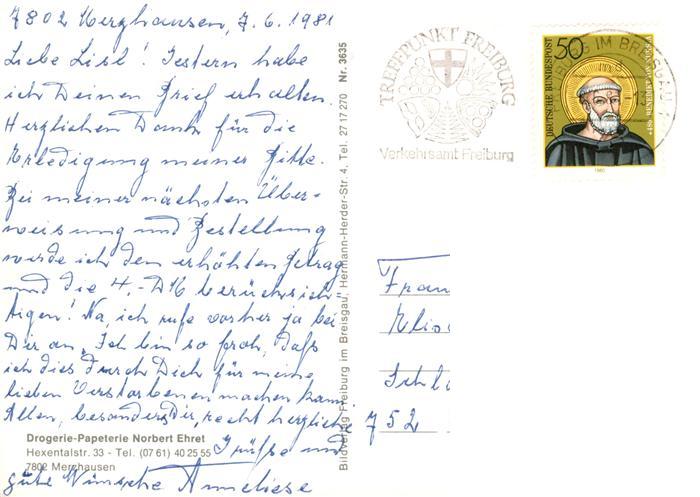 7802 Merzhausen, 7.6.1981
Liebe Lisl! Gestern habe
ich Deinen Brief erhalten.
Herzlichen Dank für die
Erledigung meiner Bitte.
Bei meiner nächsten Über-
weisung und Bestellung
werde ich den erhöhten Betrag
und die 4,- DM berücksich-
tigen! Na, ich rufe vorher ja bei
Dir an. Ich bin so froh, daß
ich dies durch Dich für meine
lieben Verstorbenen machen kann
Allen, besonders Dir, recht herzliche
Grüße und
gute Wünsche Anneliese
Drogerie-Papeterie Norbert Ehret
Hexentalstr. 33 - Tel. (07 61) 40 25 55
7802 Merzhausen
Bildverlag Freiburg im Breisgau, Hermann-Herder-Str. 4, Tel. 27 17 270 Nr. 3635
TREFFPUNKT FREIBURG
Verkehrsamt Freiburg
DEUTSCHE BUNDESPOST
50
480 BENEDIKT VON NURSIA
1980
BURG IM BREISGAU
Frau
Elis
Schl
752